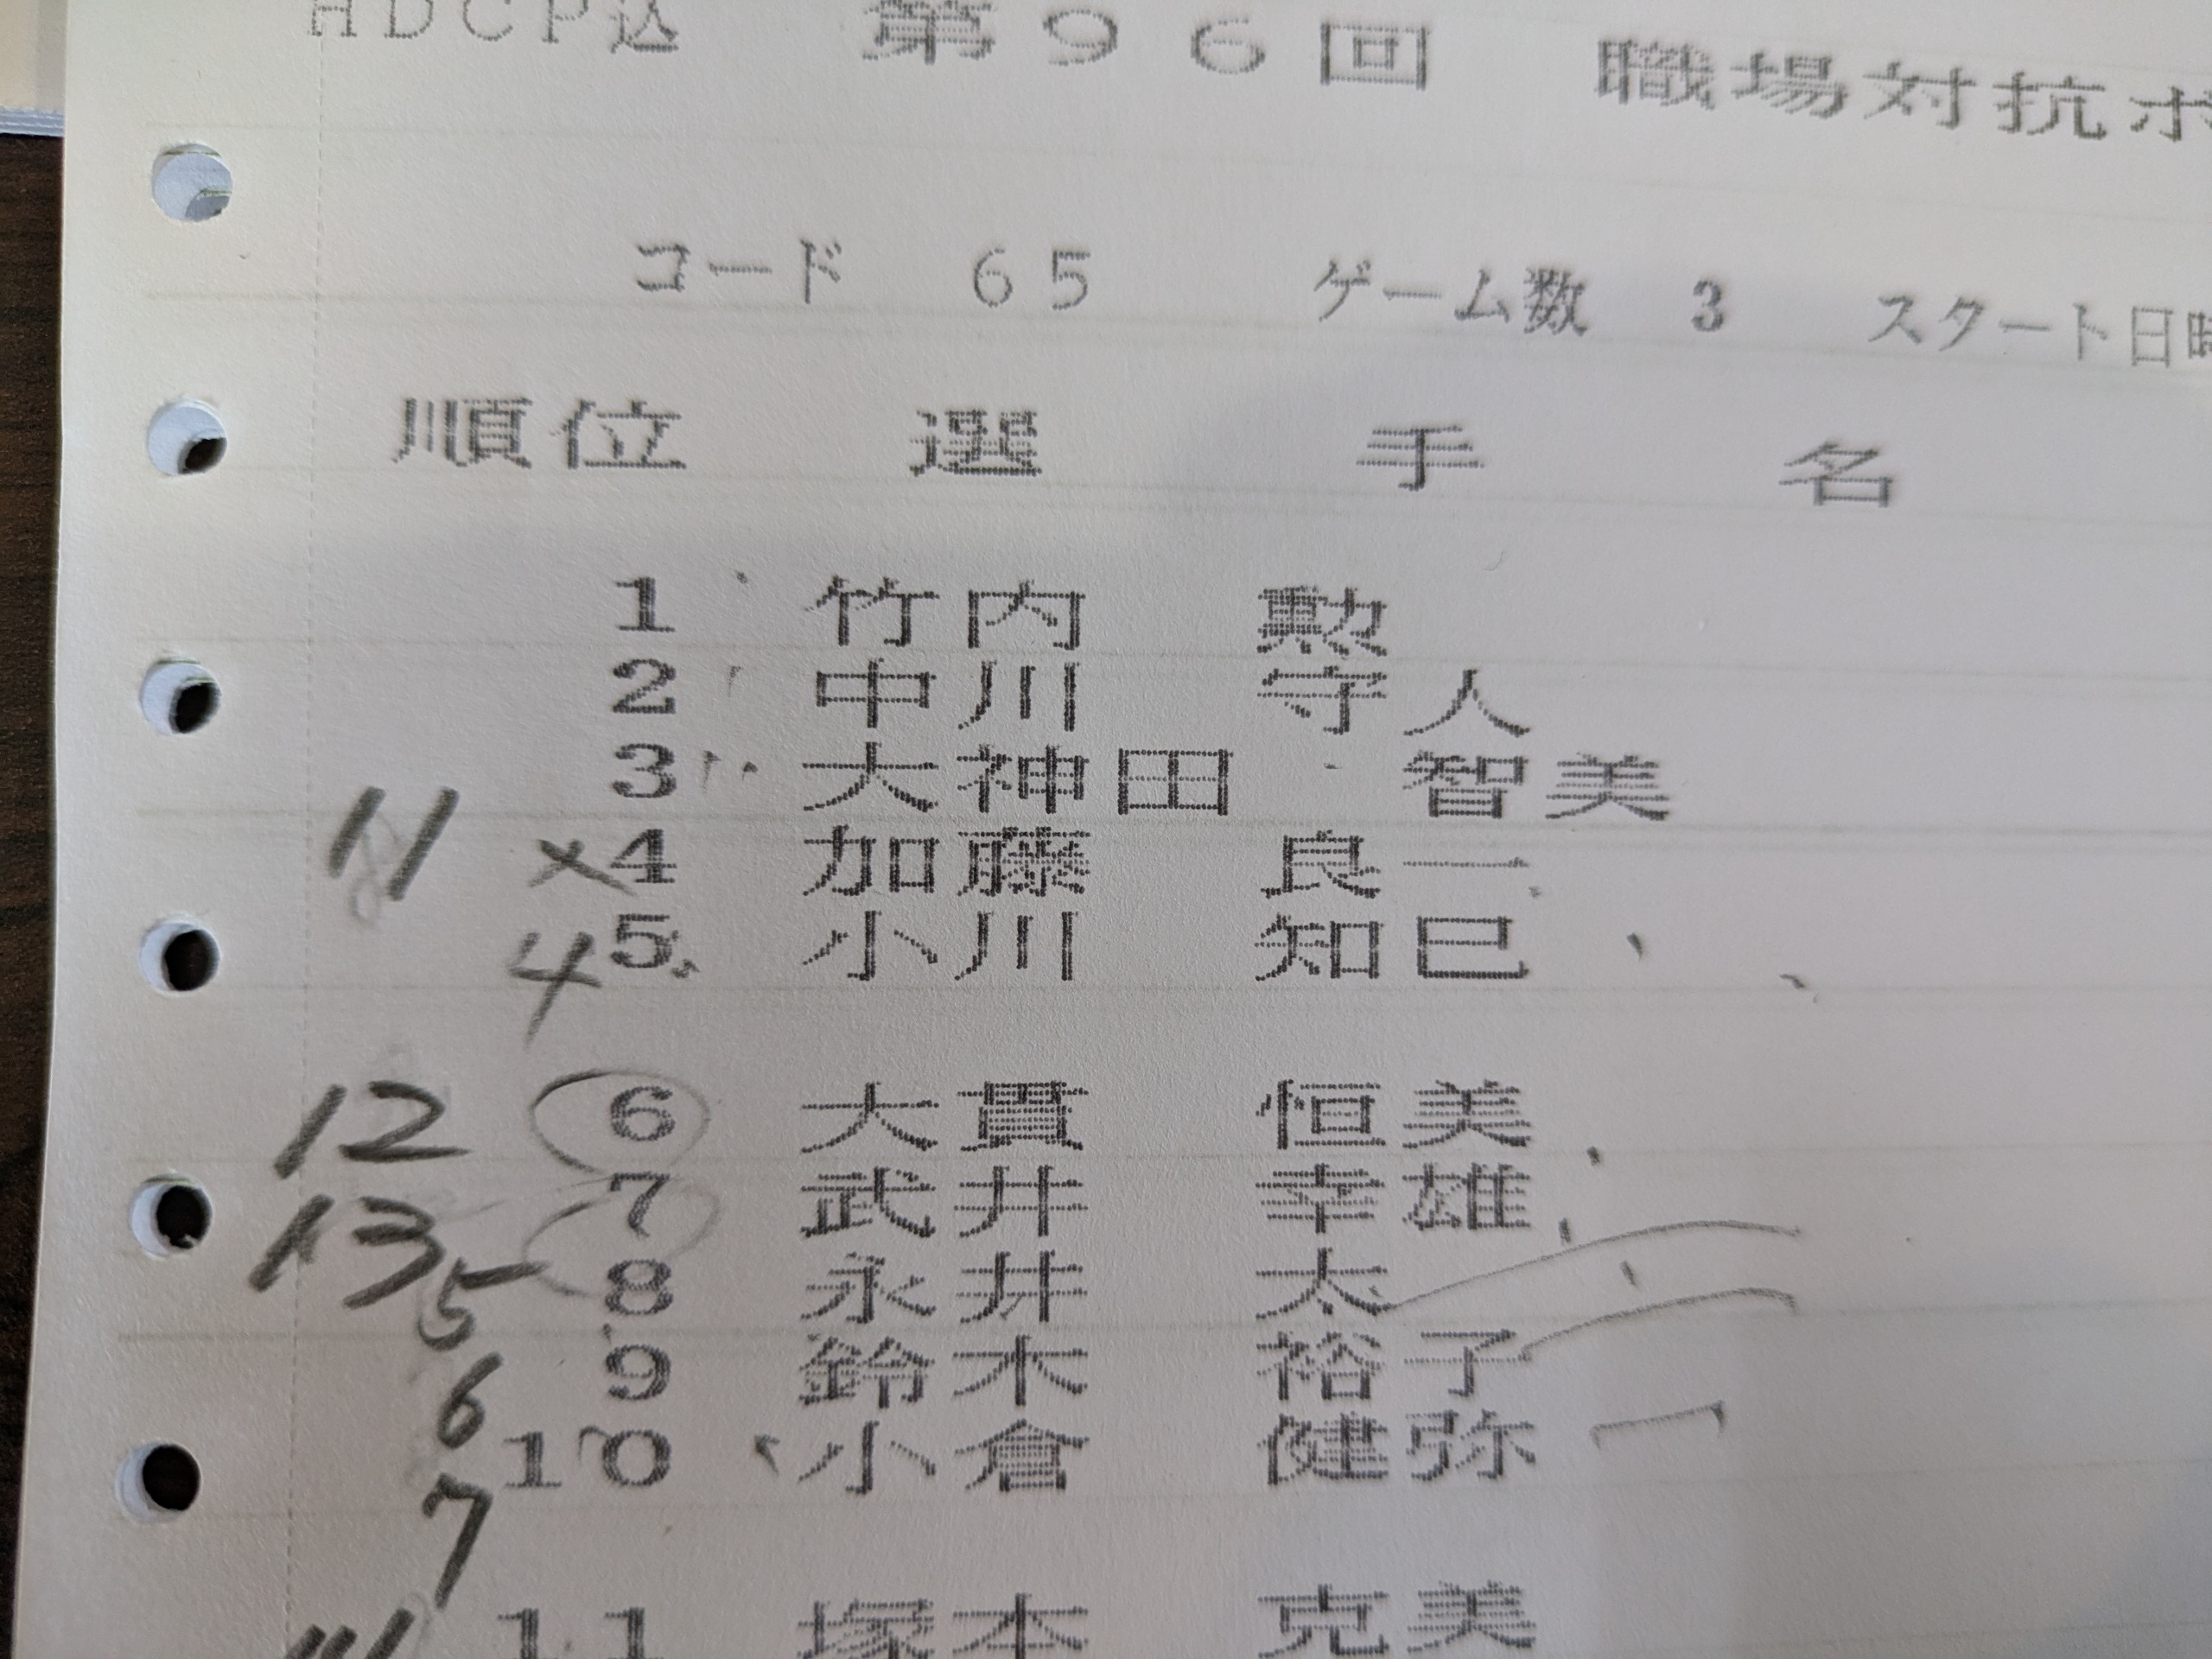 HDCP込 第96回 職場対抗ボ
コード 65 ゲーム数 3 スタート日時
順位 選手名
1 竹内 勲
2 中川 守人
3 大神田 智美
11 ×4 加藤 良一
4 5 小川 知巳
12 6 大貫 恒美
13 7 武井 幸雄
5 8 永井 太
6 9 鈴木 裕子
7 10 小倉 健弥
11 塚本 克美